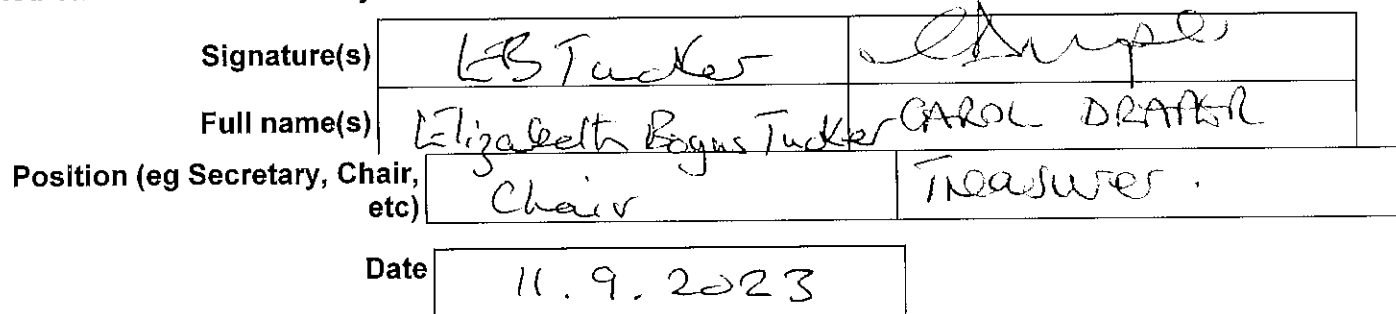 Signature(s) EB Tucker
Full name(s) Elizabeth Bogus Tucker CAROL DRAPER
Position (eg Secretary, Chair,
etc) Chair Treasurer.
Date 11.9.2023